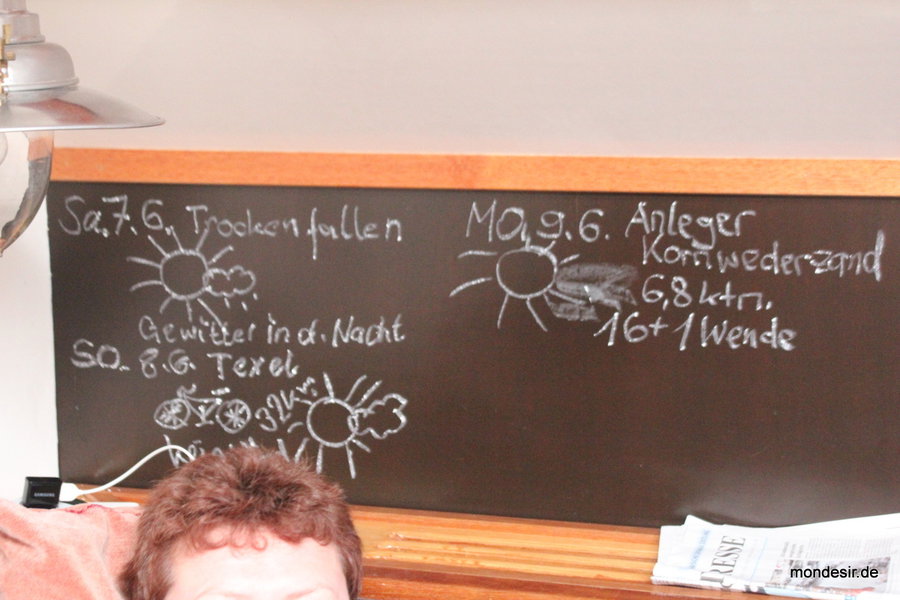 Sa. 7.6. Trockenfallen
Gewitter in d. Nacht
SO. 8.6. Texel
MO. 9.6. Anleger
Kornwederzand
6,8 ktn.
16 + 1 Wende
SAMSUNG
PRESSE
mondesir.de